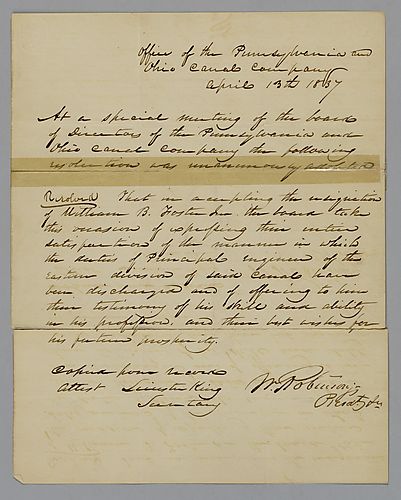 Office of the Pennsylvania and
Ohio Canal Company
April 13th 1837
At a special meeting of the board
of Directors of the Pennsylvania and
Ohio Canal Company the following
resolution was unanimously adopted
Resolved That in accepting the resignation
of William B. Foster Jr. the board take
this occasion of expressing their entire
satisfaction of the manner in which
the duties of Principal engineer of the
eastern division of said Canal have
been discharged and of offering to him
their testimony of his skill and ability
in his profession, and their best wishes for
his future prosperity.
Copied from record
Attest Leicester King
Secretary
W. Robinson Jr